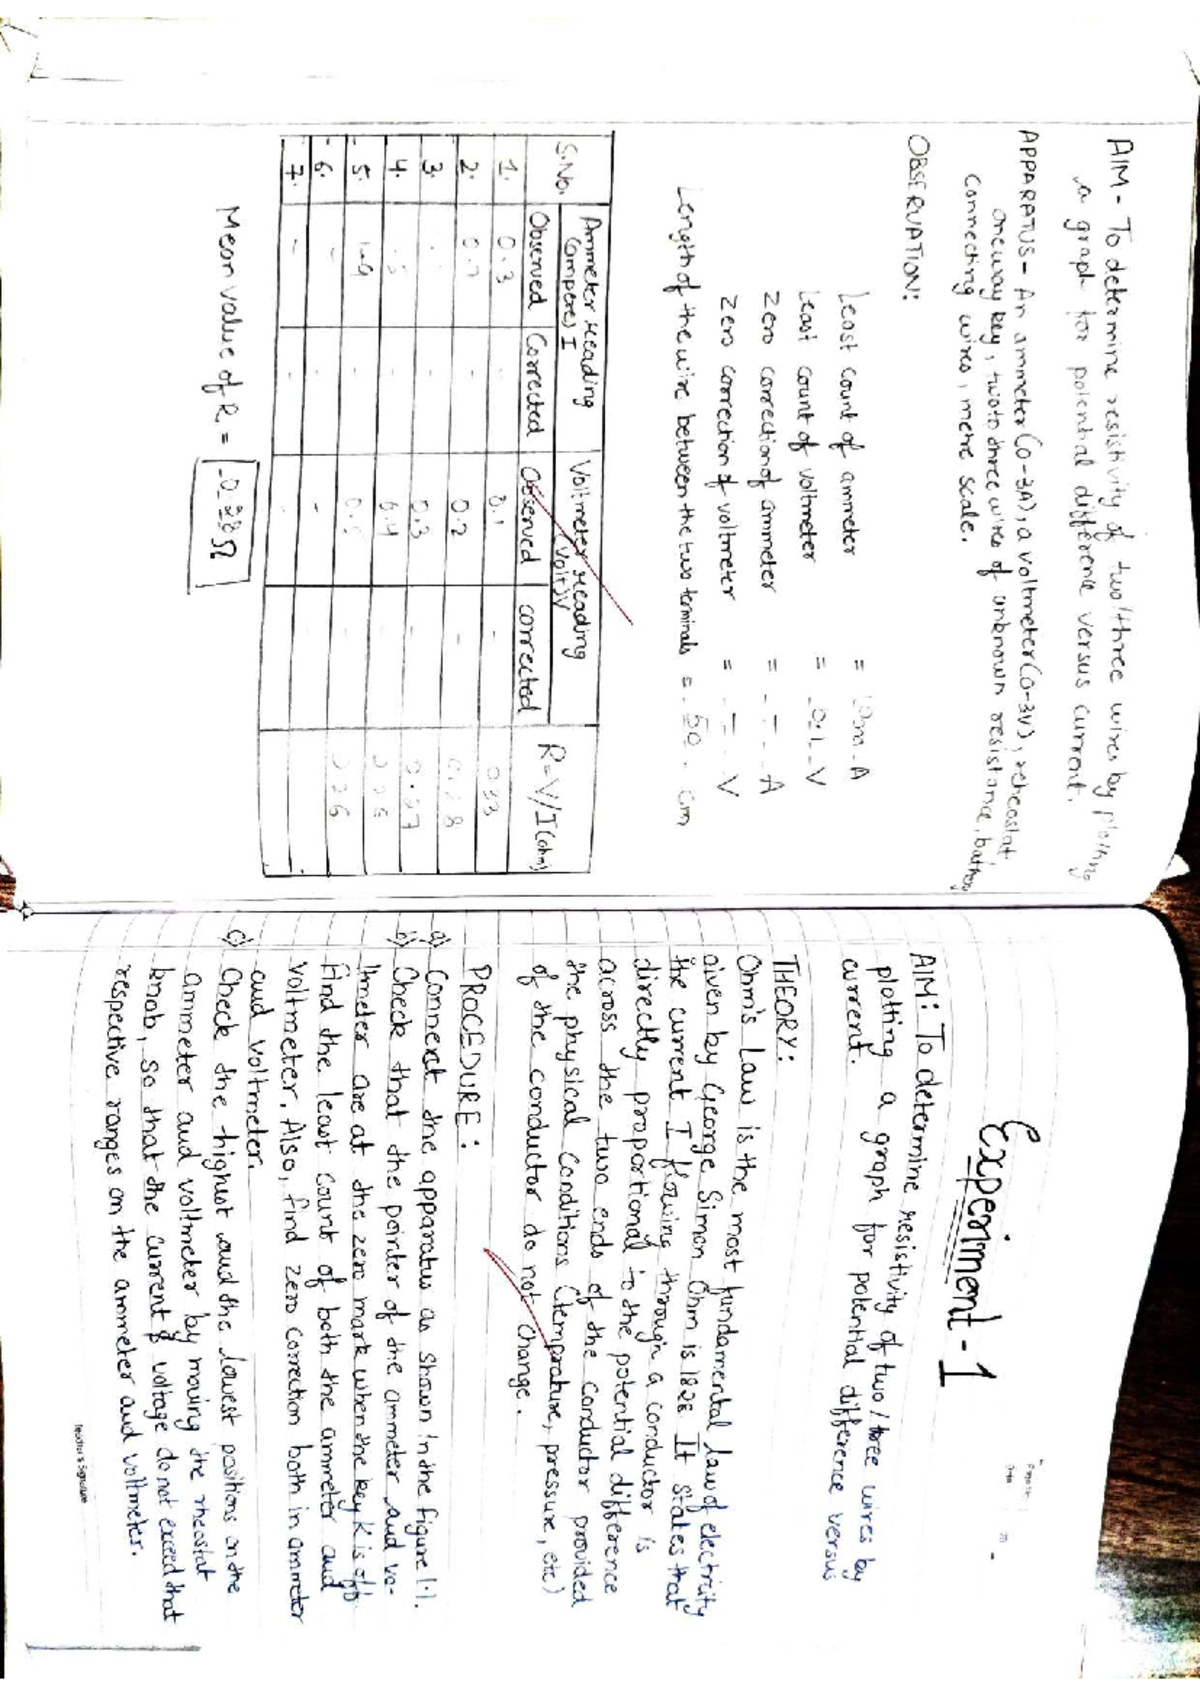 AIM - To determine resistivity of two/three wires by plotting
a graph for potential difference versus current.
APPARATUS - An ammeter (0-3A), a voltmeter (0-3V), rheostat
one way key, two to three wires of unknown resistance, battery
connecting wires, metre scale.
OBSERVATION:
Least count of ammeter = A
Least count of voltmeter = 0.1 V
Zero correction of ammeter = - - - A
Zero correction of voltmeter = - - - V
Length of the wire between the two terminals = 50 cm
S.No. Ammeter reading (amperes) I Voltmeter reading (volt) V R=V/I (ohm)
Observed Corrected Observed corrected
1. 0.3 - 0.1 - 0.33
2. 0.7 - 0.2 -
3. - 0.3 -
4. - 0.4 -
5. 1.9 - 0.5 -
6. - - -
7. - -
Mean value of R = 0.28 Ω
Experiment - 1
AIM: To determine resistivity of two/three wires by
plotting a graph for potential difference versus
current.
THEORY:
Ohm's Law is the most fundamental law of electricity
given by George Simon Ohm is 1828. It states that
the current 'I' flowing through a conductor is
directly proportional to the potential difference
across the two ends of the conductor provided
the physical conditions (temprature, pressure, etc)
of the conductor do not change.
PROCEDURE:
a) Connect the apparatus as shown in the figure 1.1.
b) Check that the pointer of the ammeter and vo-
ltmeter are at the zero mark when the key K is off
Find the least count of both the ammeter and
voltmeter. Also, find zero correction both in ammeter
and voltmeter.
c) Check the highest and the lowest positions on the
ammeter and voltmeter by moving the rheostat
knob, so that the current & voltage do not exceed that
respective ranges on the ammeter and voltmeter.
Teacher's Signature